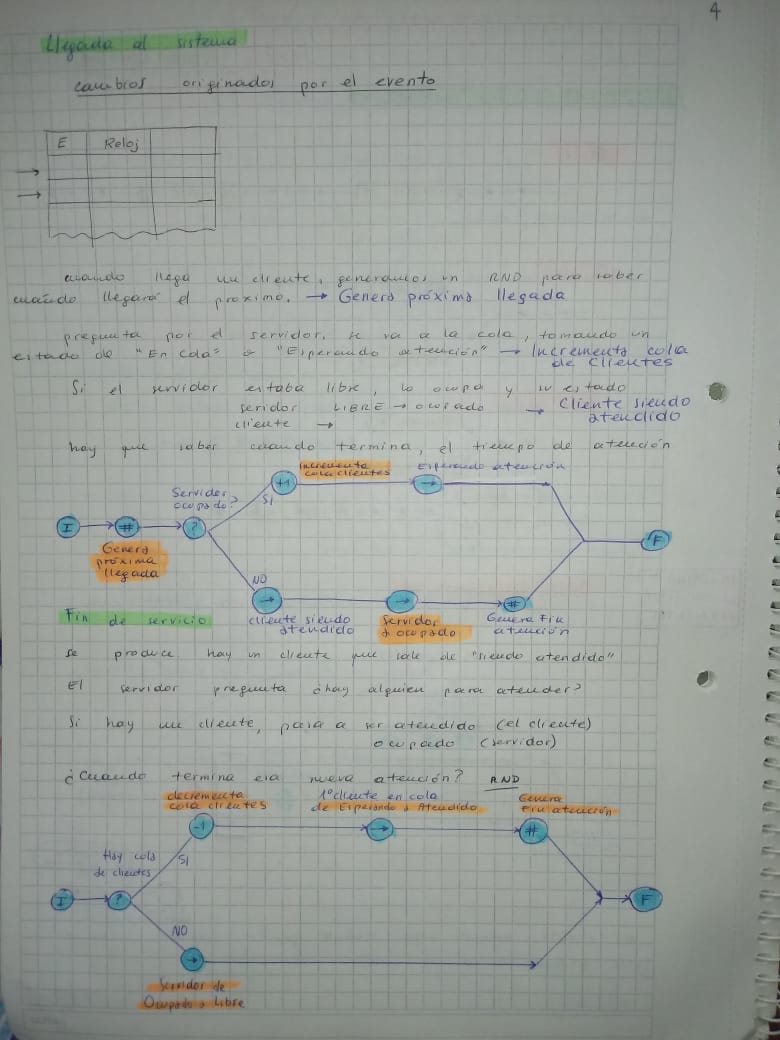 4
Llegada al sistema
cambios originados por el evento
E Reloj
cuando llega un cliente, generamos un RND para saber
cuándo llegará el proximo. → Genero próxima llegada
pregunta por el servidor, se va a la cola, tomando un
estado de "En Cola" o "Esperando atención" → Incremento cola
de clientes
Si el servidor estaba libre, lo ocupa y su estado
seridor LIBRE → ocupado → Cliente siendo
atendido
cliente →
hay que saber cuando termina, el tiempo de atención
Incrementa
cola clientes
Esperando atención
Servidor
ocupado?
SI
+1
→
I
#
?
F
Genero
próxima
llegada
NO
→
→
#
Fin de servicio
cliente siendo
atendido
Servidor
a ocupado
Genera Fin
atención
se produce hay un cliente que sale de "siendo atendido"
El servidor pregunta ¿hay alguien para atender?
Si hay un cliente, pasa a ser atendido (el cliente)
ocupado (servidor)
¿Cuando termina esa nueva atención? RND
decrementa
cola clientes
1° cliente en cola
de Esperando a Atendido
Genera
Fin atención
-1
→
#
Hay cola
de clientes
SI
I
?
F
NO
→
Servidor de
Ocupado a Libre